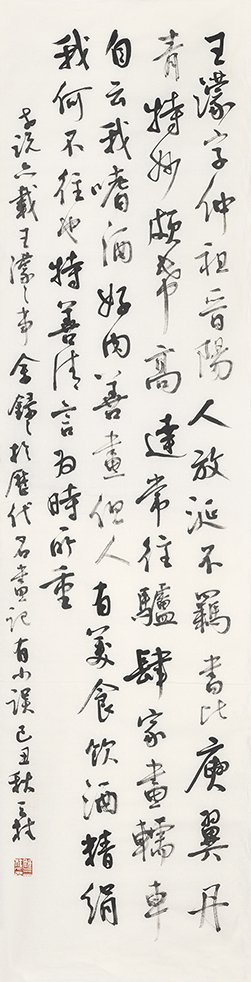 王濛字仲祖晋陽人放诞不羈書比庾翼丹
青特妙頗希高達常往驢肆家畫轜車
自云我嗜酒好肉善畫但人有美食飲酒精絹
我何不往也特善清言為時所重
世说亦載王濛之事余錄於歷代名畫記有小误己丑秋